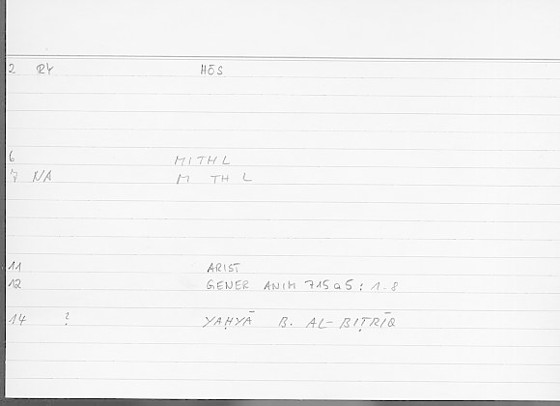 2 RY HŌS
6 MITHL
7 NA M TH L
11 ARIST
12 GENER ANIM 715a5: 1.8
14 ? YAḤYĀ B. AL-BIṬRĪQ